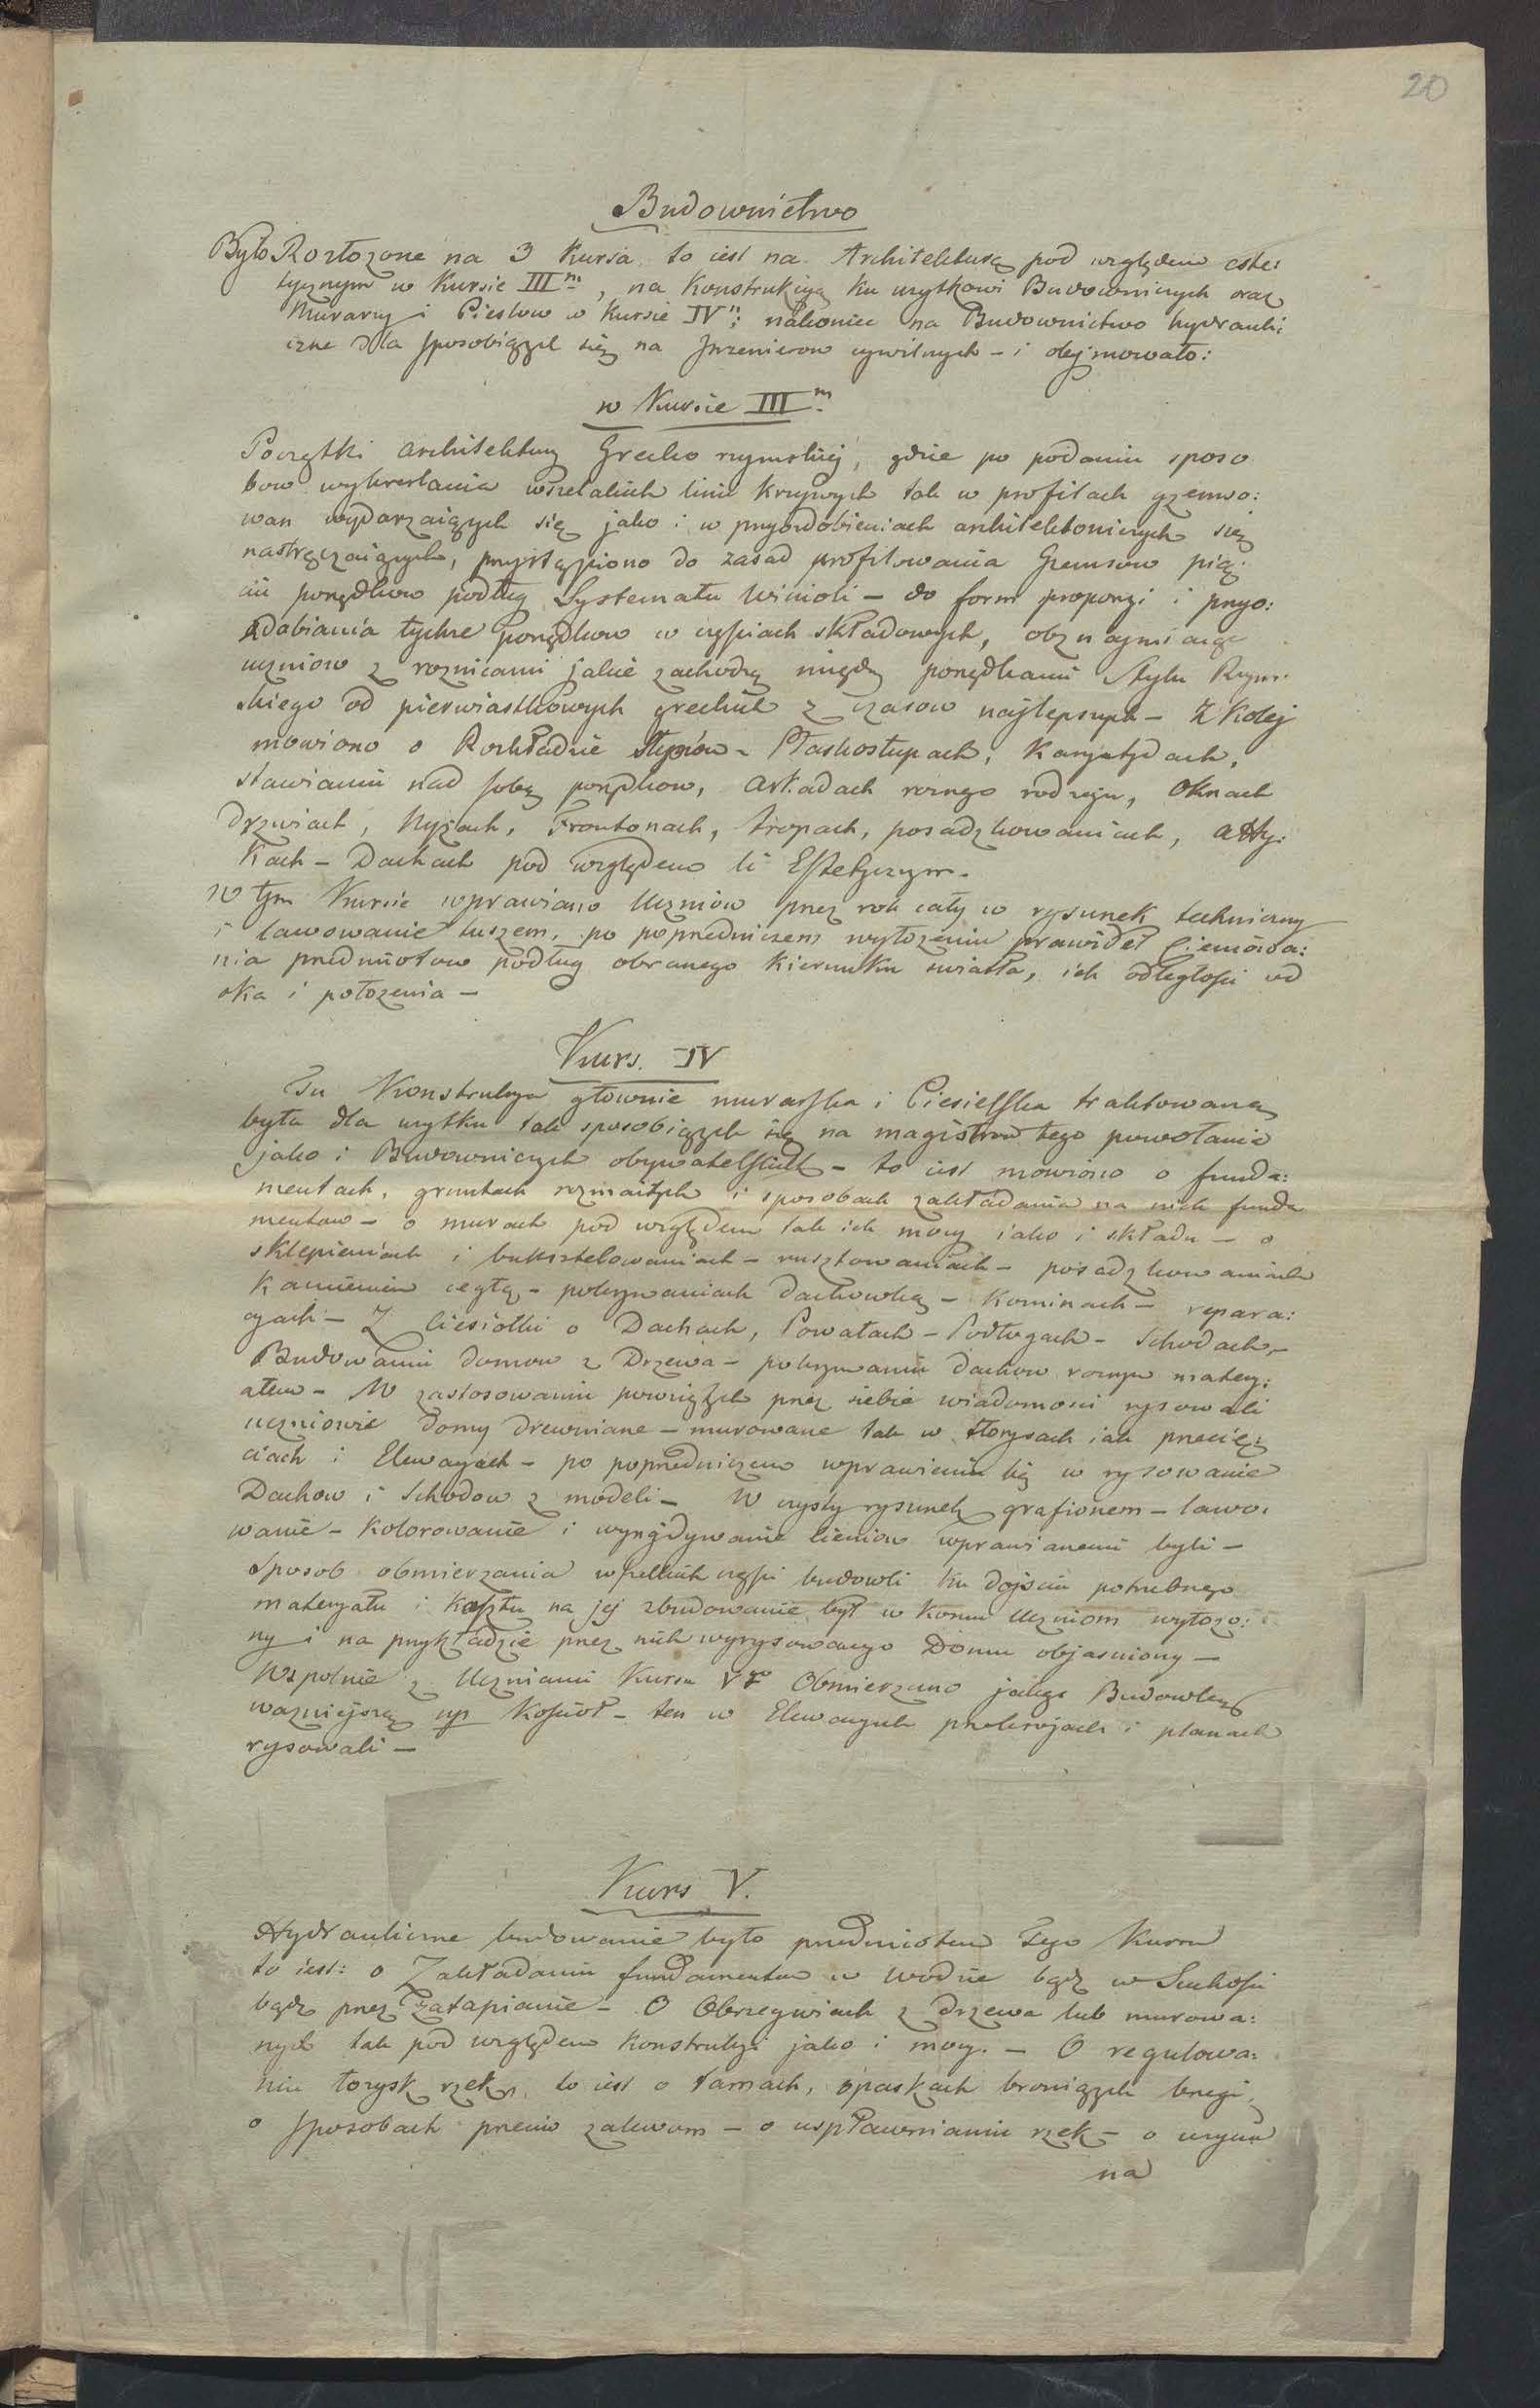 20
Budownictwo
Było Rozłożone na 3 kursa to iest na Architekturą pod względem este:
tycznym w Kursie IIIm, na Konstrukcyą ku użytkowi Budowniczych oraz
Murarzy i Cieslow w Kursie IVm: nakoniec na Budownictwo hydrauli:
czne dla sposobiących się na Inzenierow cywilnych - i obejmowało:
w Kursie IIIm
Początki architektury Grecko rzymskiej, gdzie po podaniu sposo
bow wykreslania wszelakich linii krzywych tak w profilach gzemso:
wan wydarzaiących się jako i w przyozdobieniach architektonicznych się
nastręczaiących, przystąpiono do zasad profilowania Gzemsow pię:
ciu porządkow podług Systematu Winioli - do form proporcyi i przyo:
zdabiania tychze porządkow w częściach składowych, obznaymiaiąc
uczniow z roznicami jakie zachodzą między porządkami Stylu Rzym:
skiego od pierwiastkowych greckich z czasow najlepszych - Z Kolej
mowiono o Rozkładzie słupów - Płaskosłupach, Karyatydach,
stawianiu nad sobą porządkow, arkadach roznego rodzaju, Oknach
Drzwiach, Nyżach, Frontonach, stropach, posadzkowaniach, atty:
kach - Dachach pod względem li Estetycznym.
W tym Kursie wprawiano Uczniów przez rok cały w rysunek techniczny
i lawowanie tuszem, po poprzedniczem wyłożeniu prawideł Cieniowa:
nia przedmiotow podług obranego kierunku swiatła, ich odległości od
oka i położenia -
Kurs. IV
Tu Konstrukcya głownie murarska i Ciesielska traktowaną
była dla użytku tak sposobiących się na magistrow tego powołania
jako i Budowniczych obywatelskich - to iest mowiono o funda:
mentach, gruntach rozmaitych i sposobach zakładania na nich funda
mentow - o murach pod względem tak ich mocy iako i składu - o
sklepieniach i buksztelowaniach - rusztowaniach - posadzkowaniach
Kamieniem cegłą - pokrywaniach dachowką - Kominach - repara:
cyach - Z Ciesiołki o Dachach, Powałach - Podłogach - Schodach -
Budowaniu domow z Drzewa - pokrywaniu dachow roznym matery:
ałem - W zastosowaniu powziętych przez siebie wiadomosci rysowali
uczniowie domy drewniane - murowane tak w storysach iak przecię:
ciach i Elewacyach - po poprzedniczem wprawieniu się w rysowanie
Dachow i Schodow z modeli - W czysty rysunek grafionem - lawo:
wanie - kolorowanie i wynajdywanie cieniow wprawianemi byli -
Sposob obmierzania wszelkich części budowli ku dojściu potrzebnego
materyału i kosztu na jej zbudowanie był w koncu Uczniom wyłozo:
ny i na przykładzie przez nich wyrysowanego Domu objasniony -
Wspolnie z Uczniami Kursu Vgo Obmierzano jakąs Budowlę
wazniejszą np Kościoł - ten w Elewacyach przekrojach i planach
rysowali -
Kurs V.
Hydrauliczne budowanie było przedmiotem Tego Kursu
to iest: o Zakładaniu fundamentow w wodzie bądz w Suchości
bądz przez Zatapianie - O Obrzeżwiach z drzewa lub murowa:
nych tak pod względem Konstrukcyi jako i mocy. - O regulowa:
niu łorysk rzek, to iest o tamach, opaskach broniących brzegi,
o sposobach przeciw zalewom - o uspławnianiu rzek - o użyciu
na